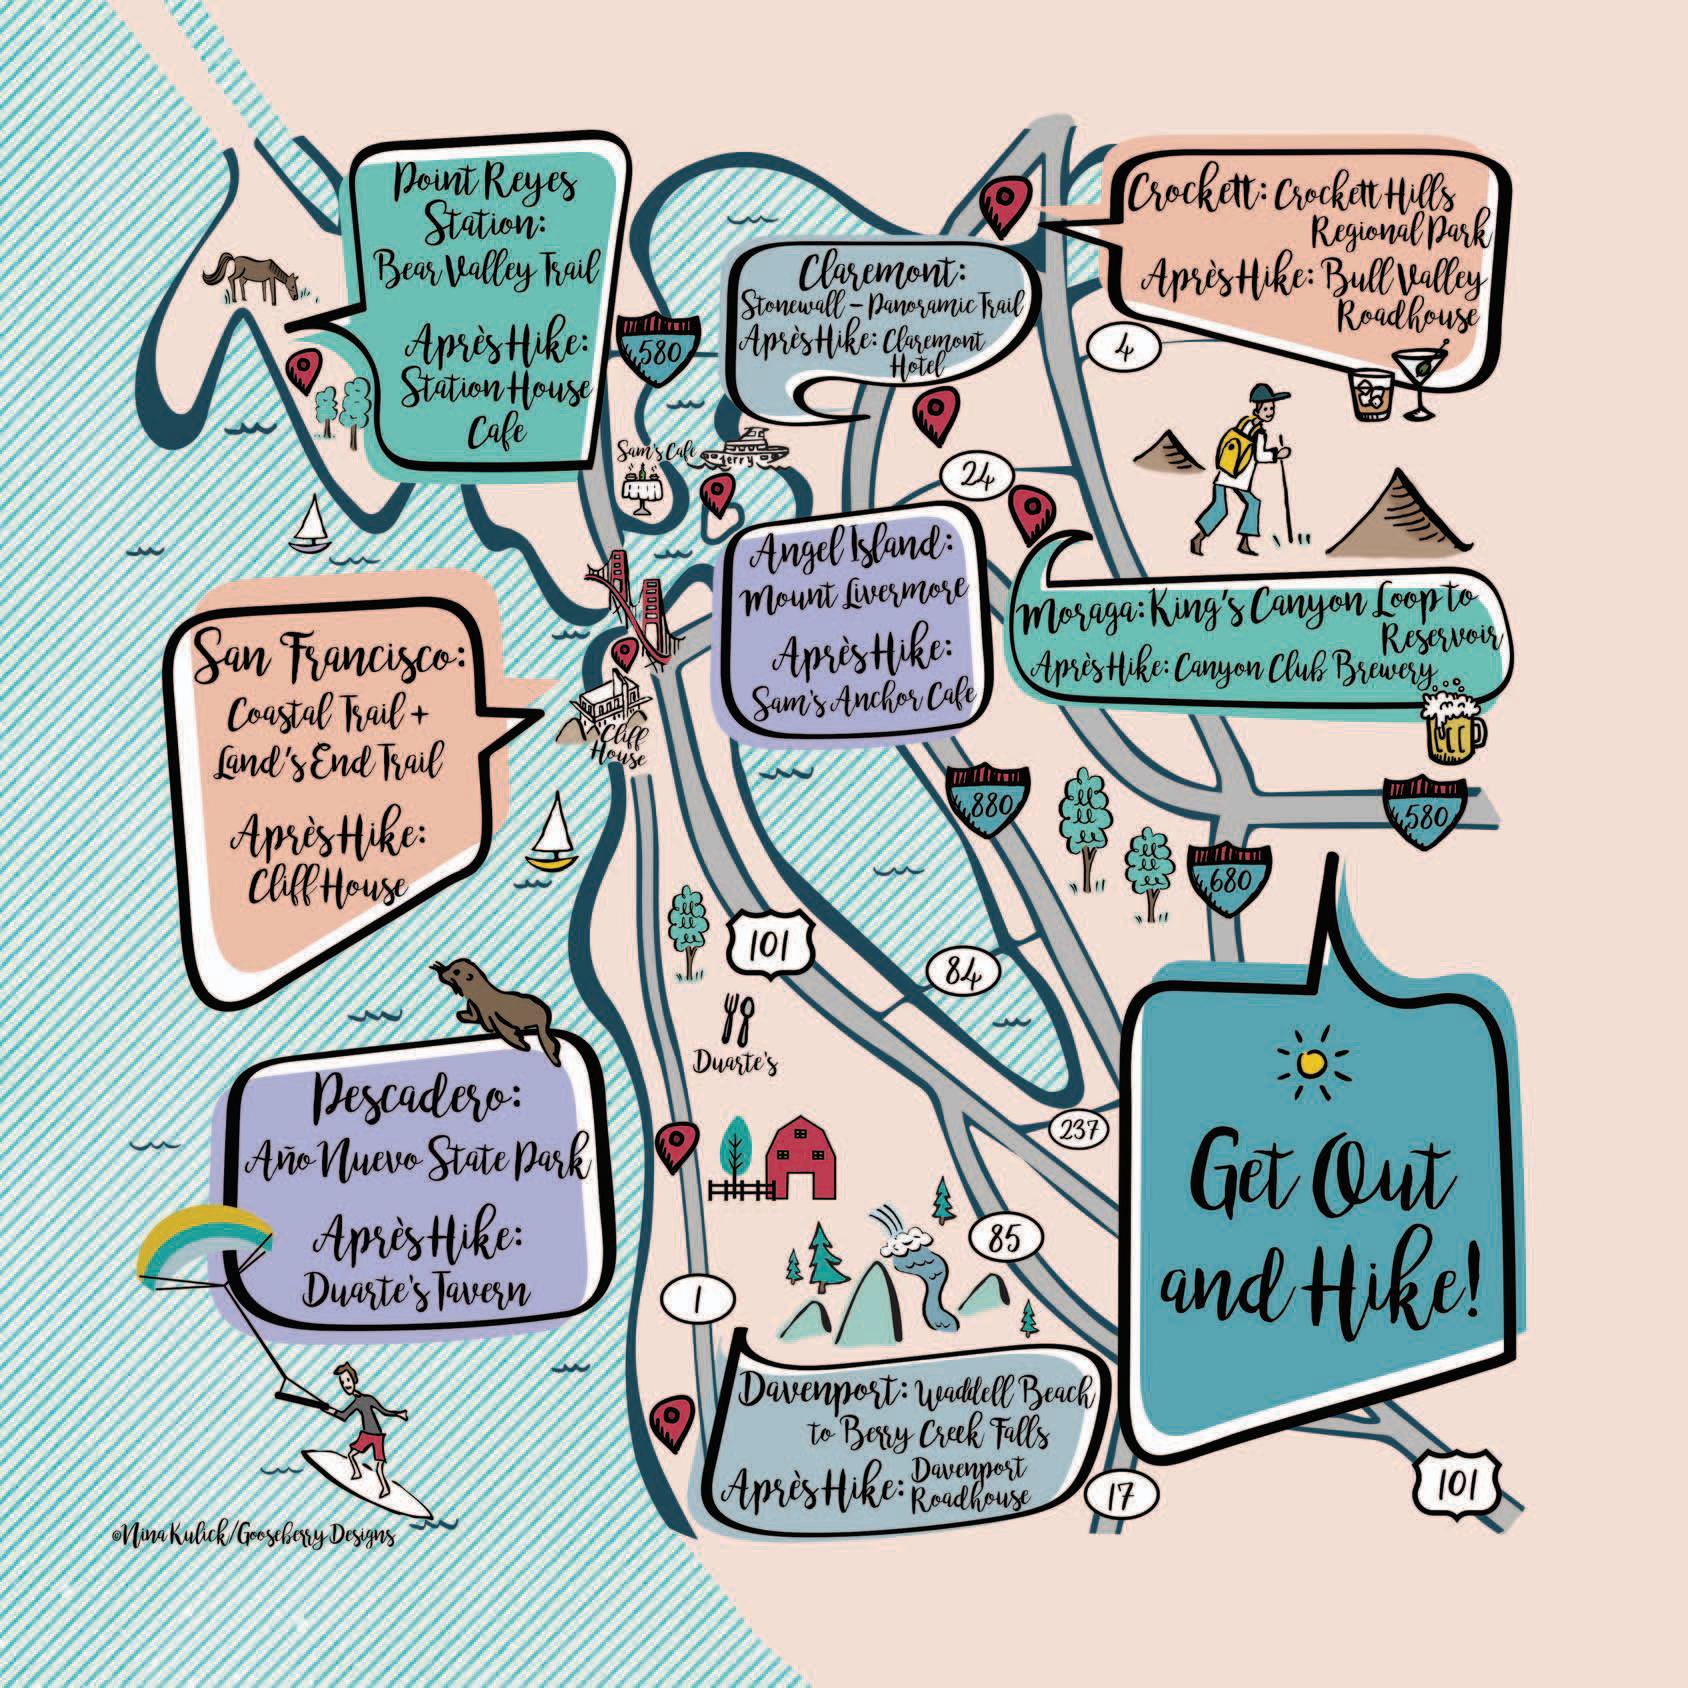 Point Reyes
Station:
Bear Valley Trail
Après Hike:
Station House
Cafe
580
Claremont:
Stonewall - Panoramic Trail
Après Hike: Claremont
Hotel
Crockett: Crockett Hills
Regional Park
Après Hike: Bull Valley
Roadhouse
4
Sam's Cafe
Ferry
24
Angel Island:
Mount Livermore
Après Hike:
Sam's Anchor Cafe
Moraga: King's Canyon Loop to
Reservoir
Après Hike: Canyon Club Brewery
San Francisco:
Coastal Trail +
Land's End Trail
Après Hike:
Cliff House
Cliff
House
880
580
680
101
84
Duarte's
237
Pescadero:
Año Nuevo State Park
Après Hike:
Duarte's Tavern
Get Out
and Hike!
85
1
Davenport: Waddell Beach
to Berry Creek Falls
Après Hike: Davenport
Roadhouse
17
101
©Nina Kulick/Gooseberry Designs